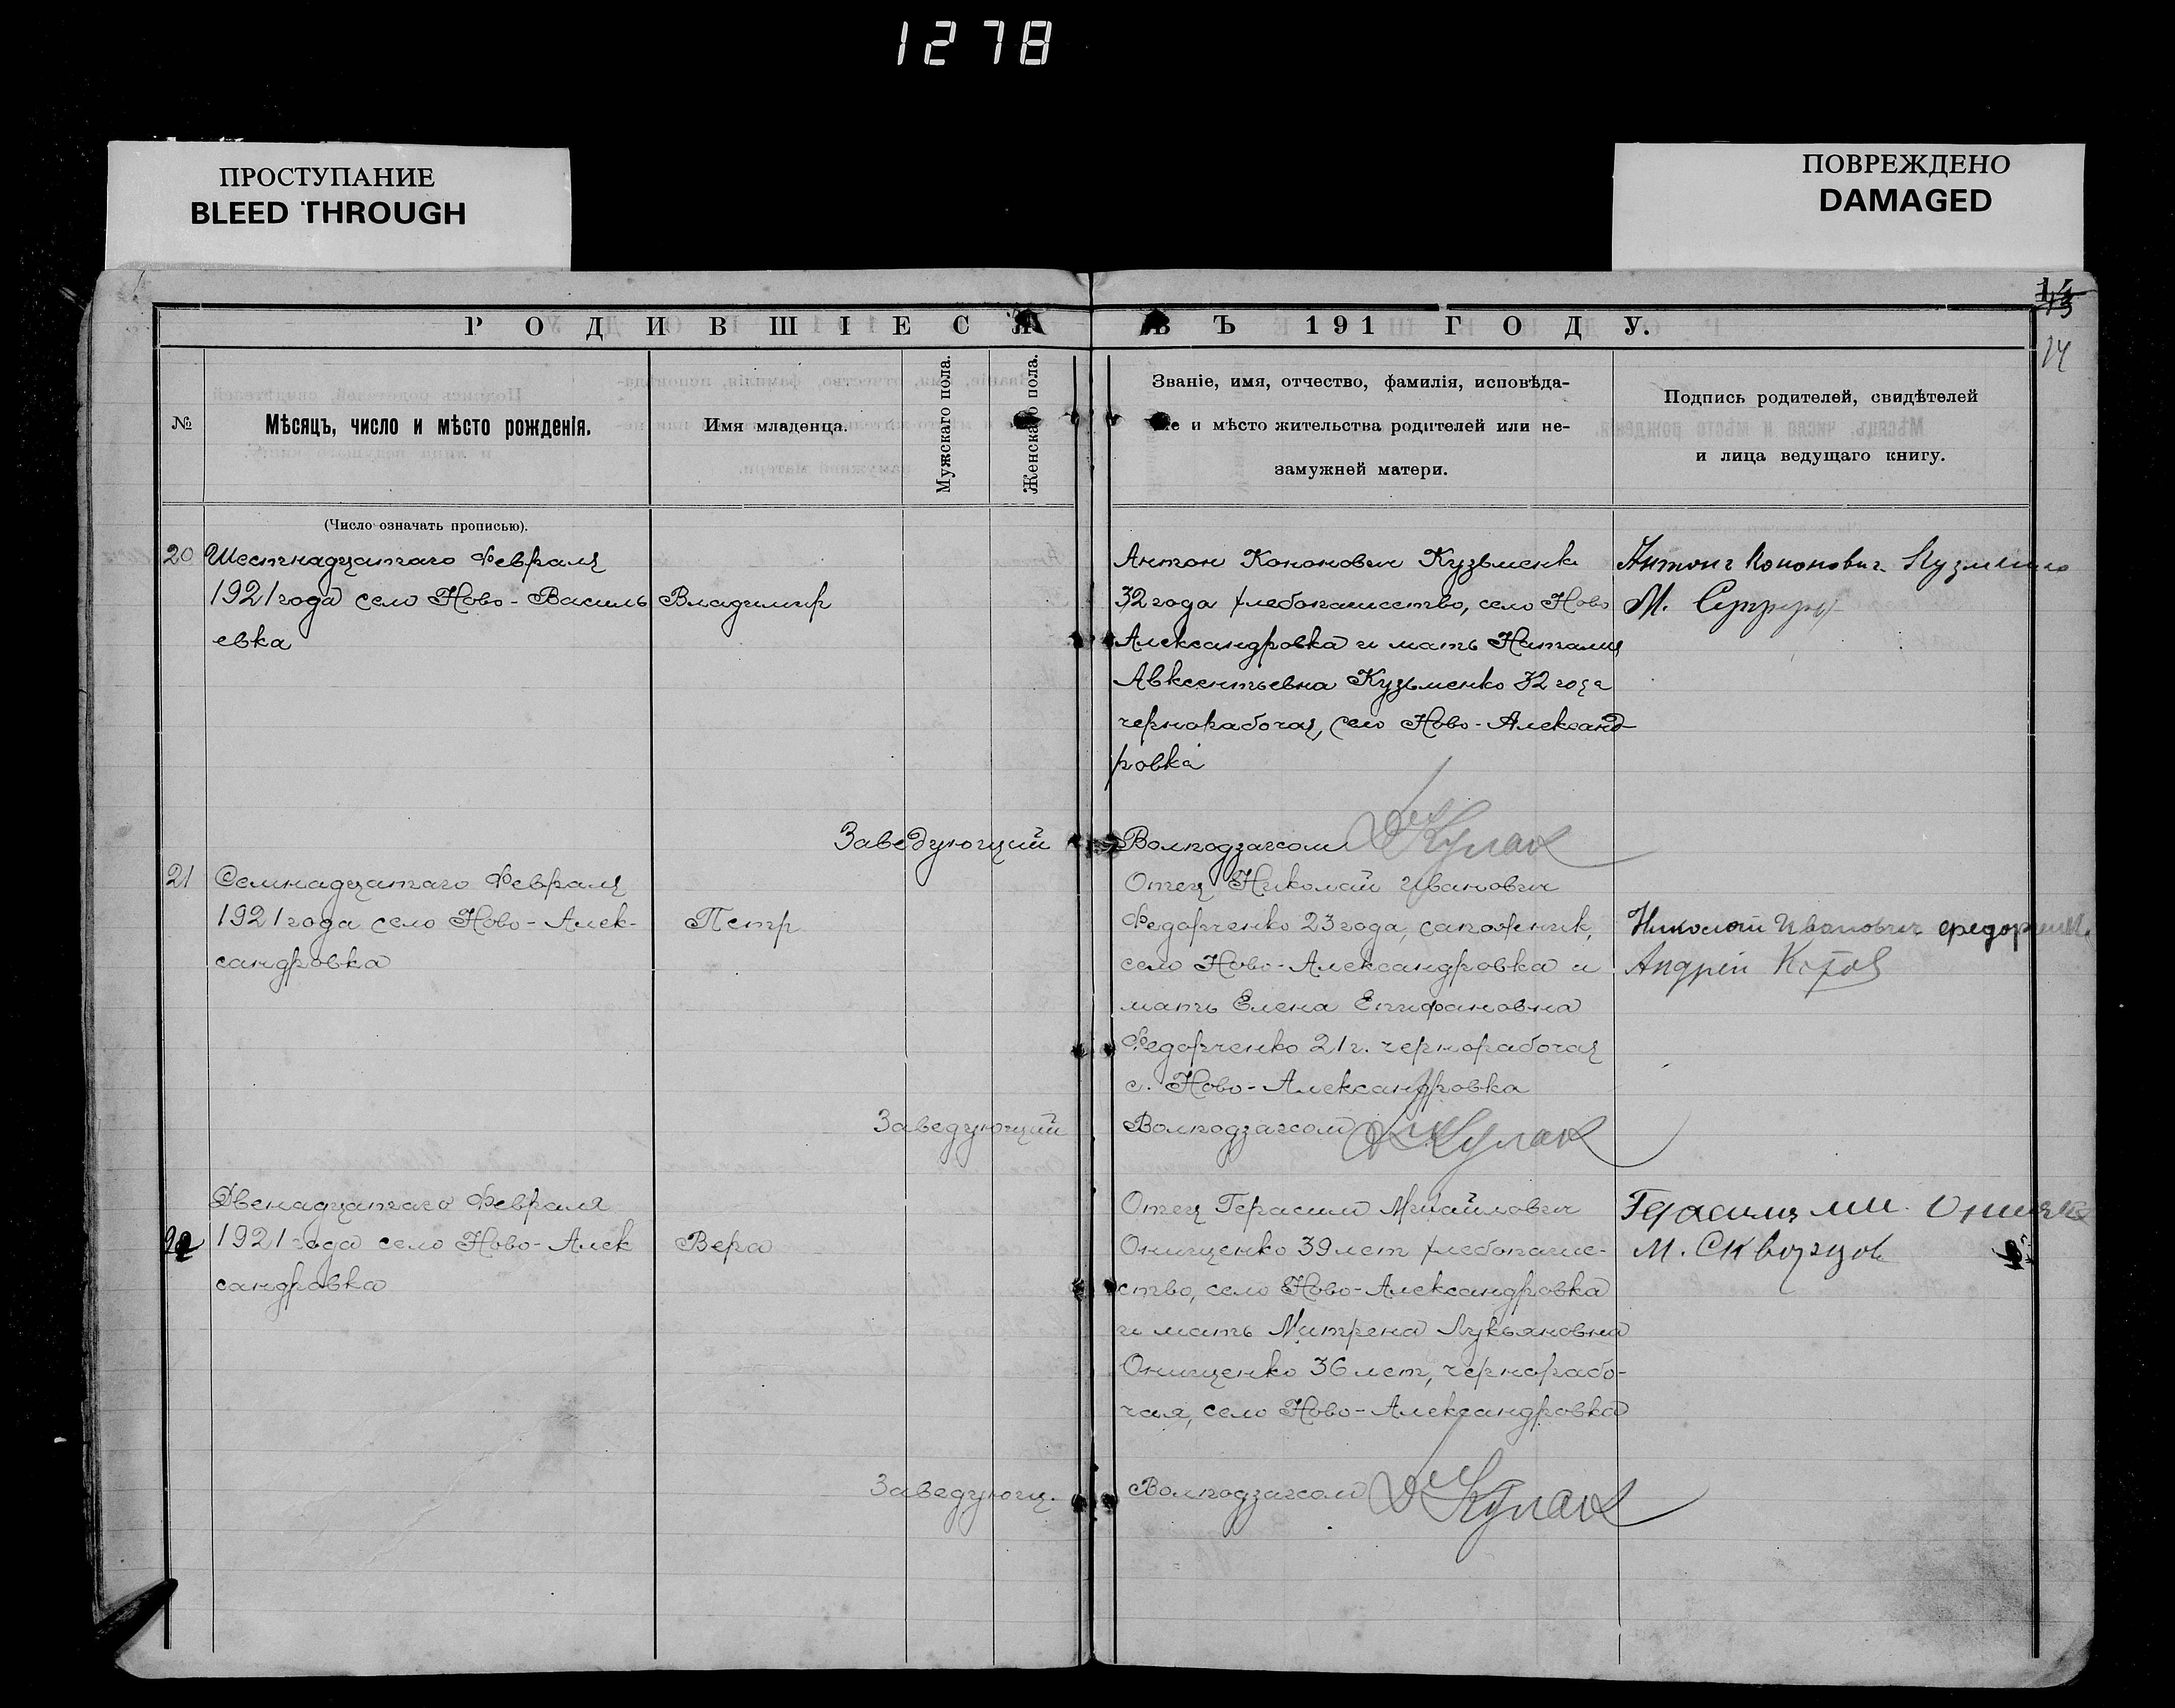 1278
ПРОСТУПАНИЕ
BLEED THROUGH
ПОВРЕЖДЕНО
DAMAGED
14
РОДИВШІЕСЯ
ВЪ 191 ГОДУ.
№
Мѣсяцъ, число и мѣсто рожденія.
Имя младенца.
Мужскаго пола.
Женскаго пола.
Званіе, имя, отчество, фамилія, исповѣда-
ніе и мѣсто жительства родителей или не-
замужней матери.
Подпись родителей, свидѣтелей
и лица ведущаго книгу.
(Число означать прописью).
20
Шестнадцатаго Февраля
1921 года село Ново-Василь
евка
Владимир
Антон Кононович Кузьменко
32 года хлебопашество, село Ново
Александровка и мать Наталия
Авксентьевна Кузьменко 32 года
чернорабочая, село Ново-Александ-
ровка
Антонъ Кононович Кузменко
М.
Заведующий
Волподзагсом Кулак
21
Семнадцатаго Февраля
1921 года село Ново-Алек-
сандровка
Петр
Отец Николай Иванович
Федорченко 23 года, сапожник,
село Ново-Александровка и
мать Елена Епифановна
Федорченко 21 г. чернорабочая
с. Ново-Александровка
Николай Иванович
Андрей Котов
Заведующий
Волподзагсом Кулак
22
Двенадцатаго Февраля
1921 года село Ново-Алек
сандровка
Вера
Отец Герасим Михайлович
Онищенко 39 лет хлебопаше-
ство, село Ново-Александровка
и мать Митрена Лукьяновна
Онищенко 36 лет, чернорабо-
чая, село Ново-Александровка
Герасим Ми.
М. Скворцов
Заведующ.
Волподзагсом Кулак